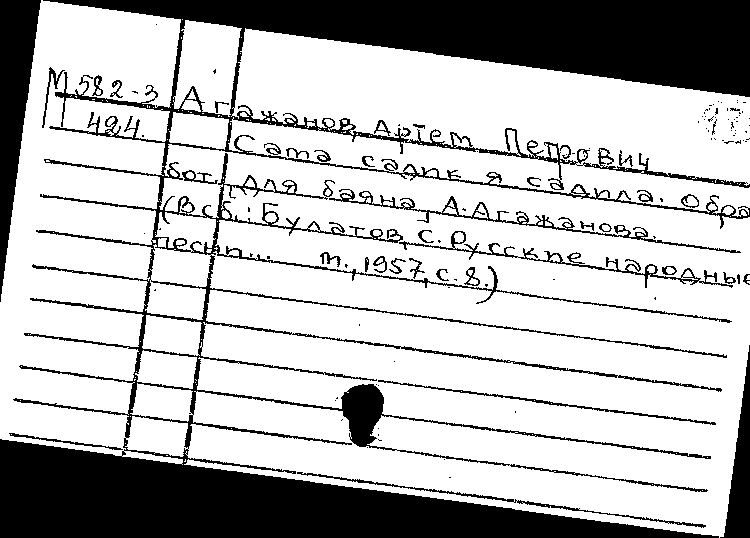 М 582-3 Агажанов, Артем Петрович
424. Сама садик я садила. Обра
бот. для баяна А. Агажанова.
(В сб.: Булатов, С. Русские народные
песни... М., 1957, с. 8.)